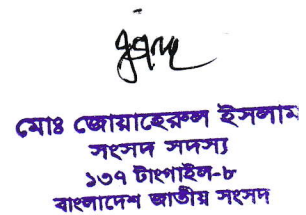 মোঃ জোয়াহেরুল ইসলাম
সংসদ সদস্য
১৩৭ টাংগাইল-৮
বাংলাদেশ জাতীয় সংসদ